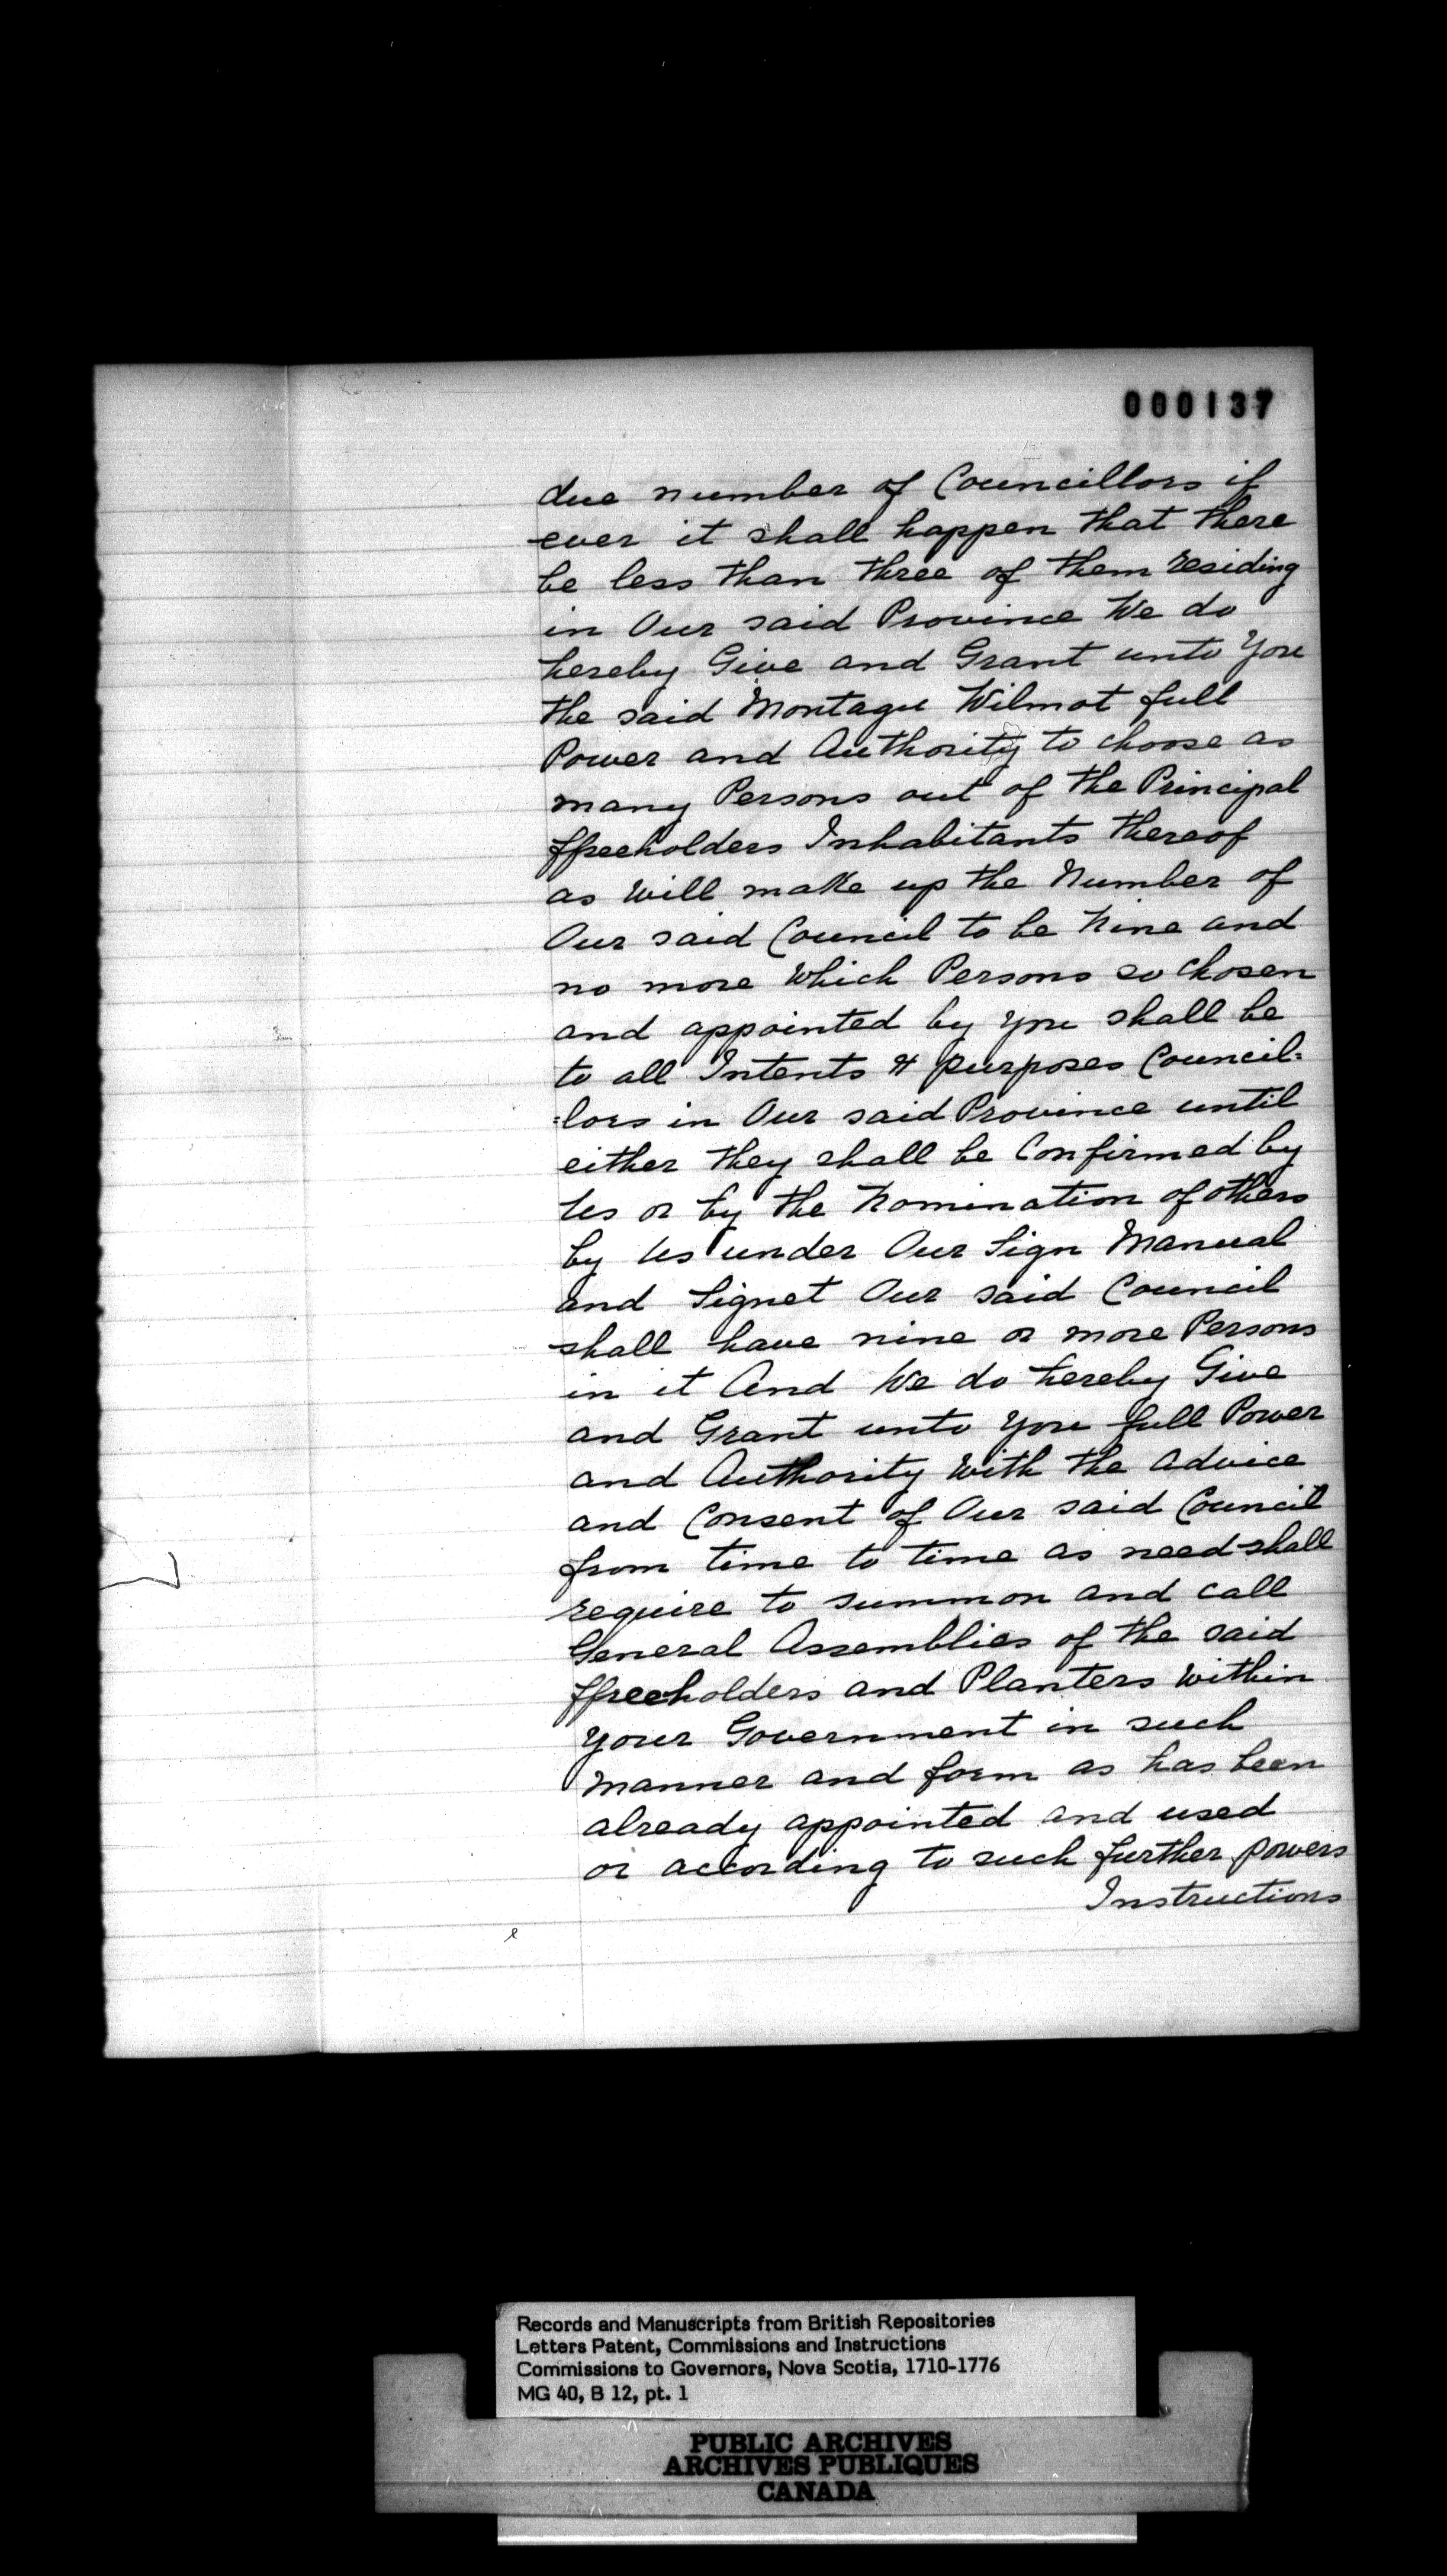 000137
due number of Councillors if
ever it shall happen that there
be less than three of them residing
in Our said Province We do
hereby Give and Grant unto You
the said Montagu Wilmot full
Power and Authority to choose as
many Persons out of the Principal
ffreeholders Inhabitants thereof
as will make up the Number of
Our said Council to be Nine and
no more which Persons so chosen
and appointed by you shall be
to all Intents & purposes Council=
=lors in Our said Province until
either they shall be Confirmed by
Us or by the Nomination of others
by Us under Our Sign Manual
and Signet Our said Council
shall have nine or more Persons
in it And We do hereby Give
and Grant unto you full Power
and Authority with the advice
and Consent of Our said Council
from time to time as need shall
require to summon and call
General Assemblies of the said
ffreeholders and Planters within
your Government in such
manner and form as has been
already appointed and used
or according to such further powers
Instructions
Records and Manuscripts from British Repositories
Letters Patent, Commissions and Instructions
Commissions to Governors, Nova Scotia, 1710-1776
MG 40, B 12, pt. 1
PUBLIC ARCHIVES
ARCHIVES PUBLIQUES
CANADA